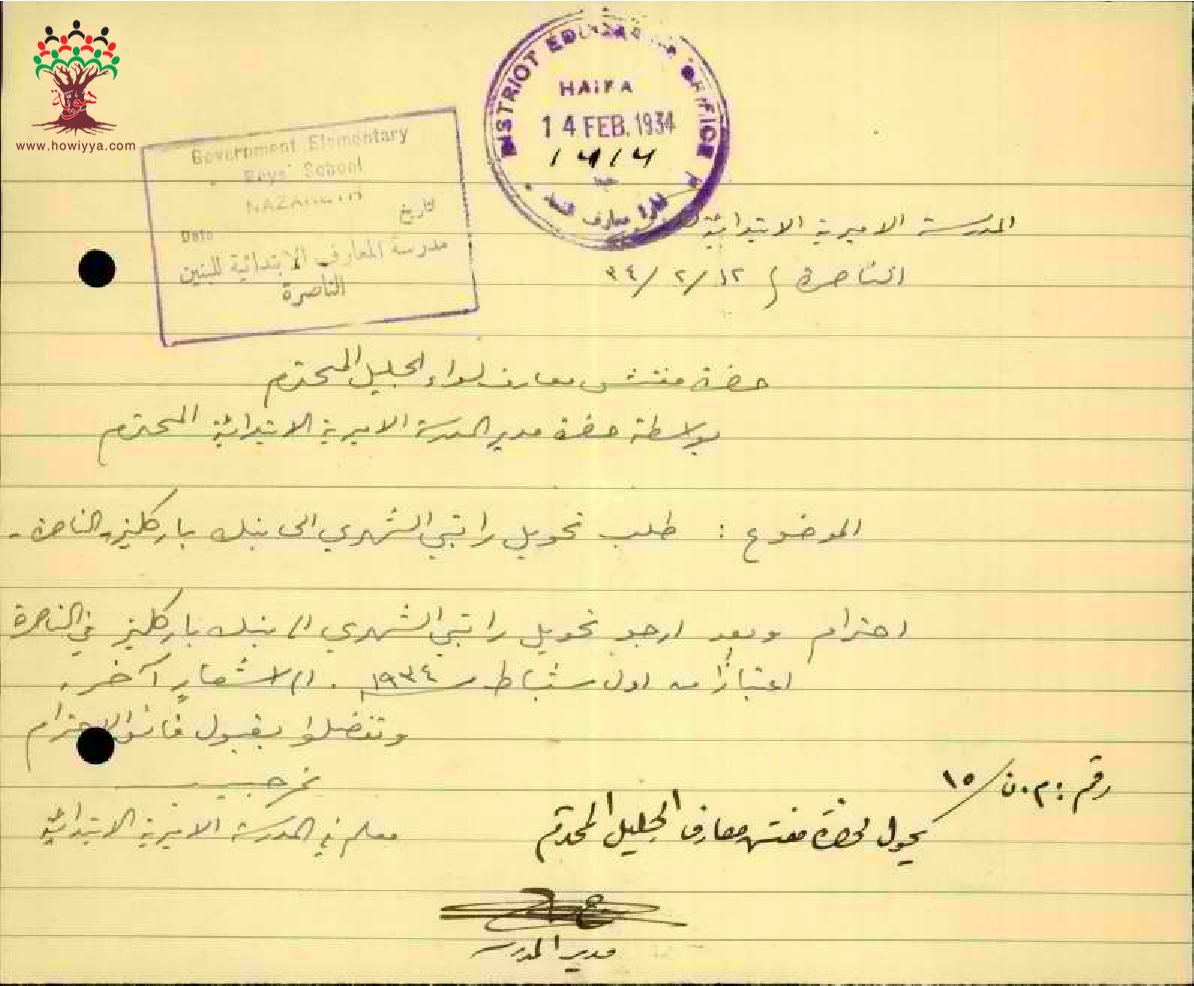 حويتنا
www.howiyya.com
DISTRICT EDUCATION OFFICE
HAIFA
14 FEB. 1934
1414
حيفا
Government Elementary
Boys' School
NAZARETH
Date تاريخ
مدرسة المعارف الابتدائية للبنين
الناصرة
المدرسة الاميرية الابتدائية
الناصرة / ١٢/ ٢/ ٣٤
حضرة مفتش معارف لواء الجليل المحترم
بواسطة حضرة مدير المدرسة الاميرية الابتدائية المحترم
الموضوع : طلب تحويل راتبي الشهري الى بنك باركليز الناصرة .
احترام وبعد ارجو تحويل راتبي الشهري الى بنك باركليز في الناصرة
اعتبارًا من اول شباط سنة ١٩٣٤ . الى اشعارٍ آخر .
وتفضلوا بقبول فائق الاحترام
معلم في المدرسة الاميرية الابتدائية
رقم : م.ن/ ١٥
يحول لحضرة مفتش معارف الجليل المحترم
مدير المدرسة